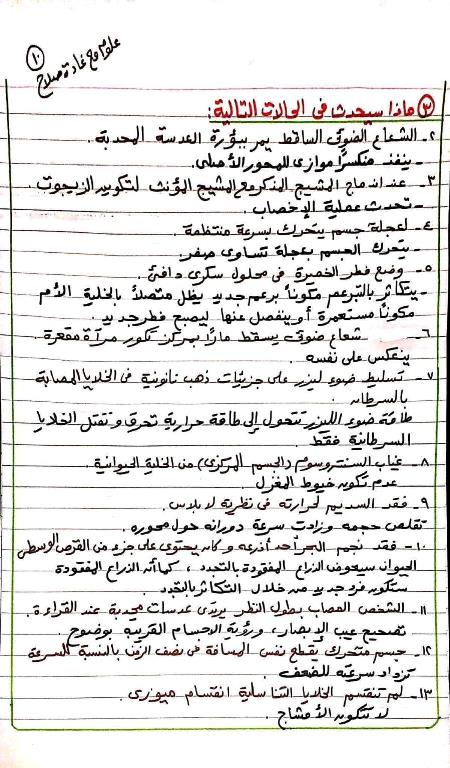 علوم مع غادة صلاح
١٠
٣ ماذا سيحدث فى الحالات التالية:
٢- الشعاع الضوئى الساقط يمر ببؤرة العدسة المحدبة.
- ينفذ منكسرًا موازى للمحور الأصلى.
٣- عند اندماج المشيج المذكر مع المشيج المؤنث لتكوين الزيجوت.
- تحدث عملية الإخصاب.
٤- لعجلة جسم يتحرك بسرعة منتظمة.
- يتحرك الجسم بعجلة تساوى صفر.
٥- وضع فطر الخميرة فى محلول سكرى دافئ.
- يتكاثر بالتبرعم مكونًا برعم جديد يظل متصلًا بالخلية الأم
مكونًا مستعمرة أو ينفصل عنها ليصبح فطر جديد.
٦- شعاع ضوئى يسقط مارًا بمركز تكور مرآة مقعرة.
ينعكس على نفسه.
٧- تسليط ضوء ليزر على جزيئات ذهب نانونية فى الخلايا المصابة
بالسرطان.
طاقة ضوء الليزر تتحول إلى طاقة حرارية تحرق وتقتل الخلايا
السرطانية فقط.
٨- غياب السنتروسوم (الجسم المركزى) من الخلية الحيوانية.
عدم تكون خيوط المغزل.
٩- فقد السديم لحرارته فى نظرية لابلاس.
تقلص حجمه وزادت سرعة دورانه حول محوره.
١٠- فقد نجم البحر أحد أذرعه وكان يحتوى على جزء من القرص الوسطى
الحيوان سيعوض الذراع المفقودة بالتجدد، كما أن الذراع المفقودة
ستكون فرد جديد من خلال التكاثر بالتجدد.
١١- الشخص المصاب بطول النظر يرتدى عدسات محدبة عند القراءة.
تصحيح عيب الإبصار، ورؤية الأجسام القريبة بوضوح
١٢- جسم متحرك يقطع نفس المسافة فى نصف الزمن بالنسبة للسرعة
تزداد سرعته للضعف.
١٣- لم تنقسم الخلايا التناسلية انقسام ميوزى.
لا تتكون الأمشاج.